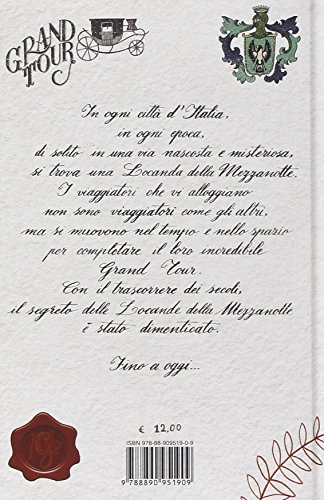 GRAND
TOUR
In ogni città d'Italia,
in ogni epoca,
di solito in una via nascosta e misteriosa,
si trova una Locanda della Mezzanotte.
I viaggiatori che vi alloggiano
non sono viaggiatori come gli altri,
ma si muovono nel tempo e nello spazio
per completare il loro incredibile
Grand Tour.
Con il trascorrere dei secoli,
il segreto delle Locande della Mezzanotte
è stato dimenticato.
Fino a oggi...
€ 12,00
ISBN 978-88-909519-0-9
9 788890 951909